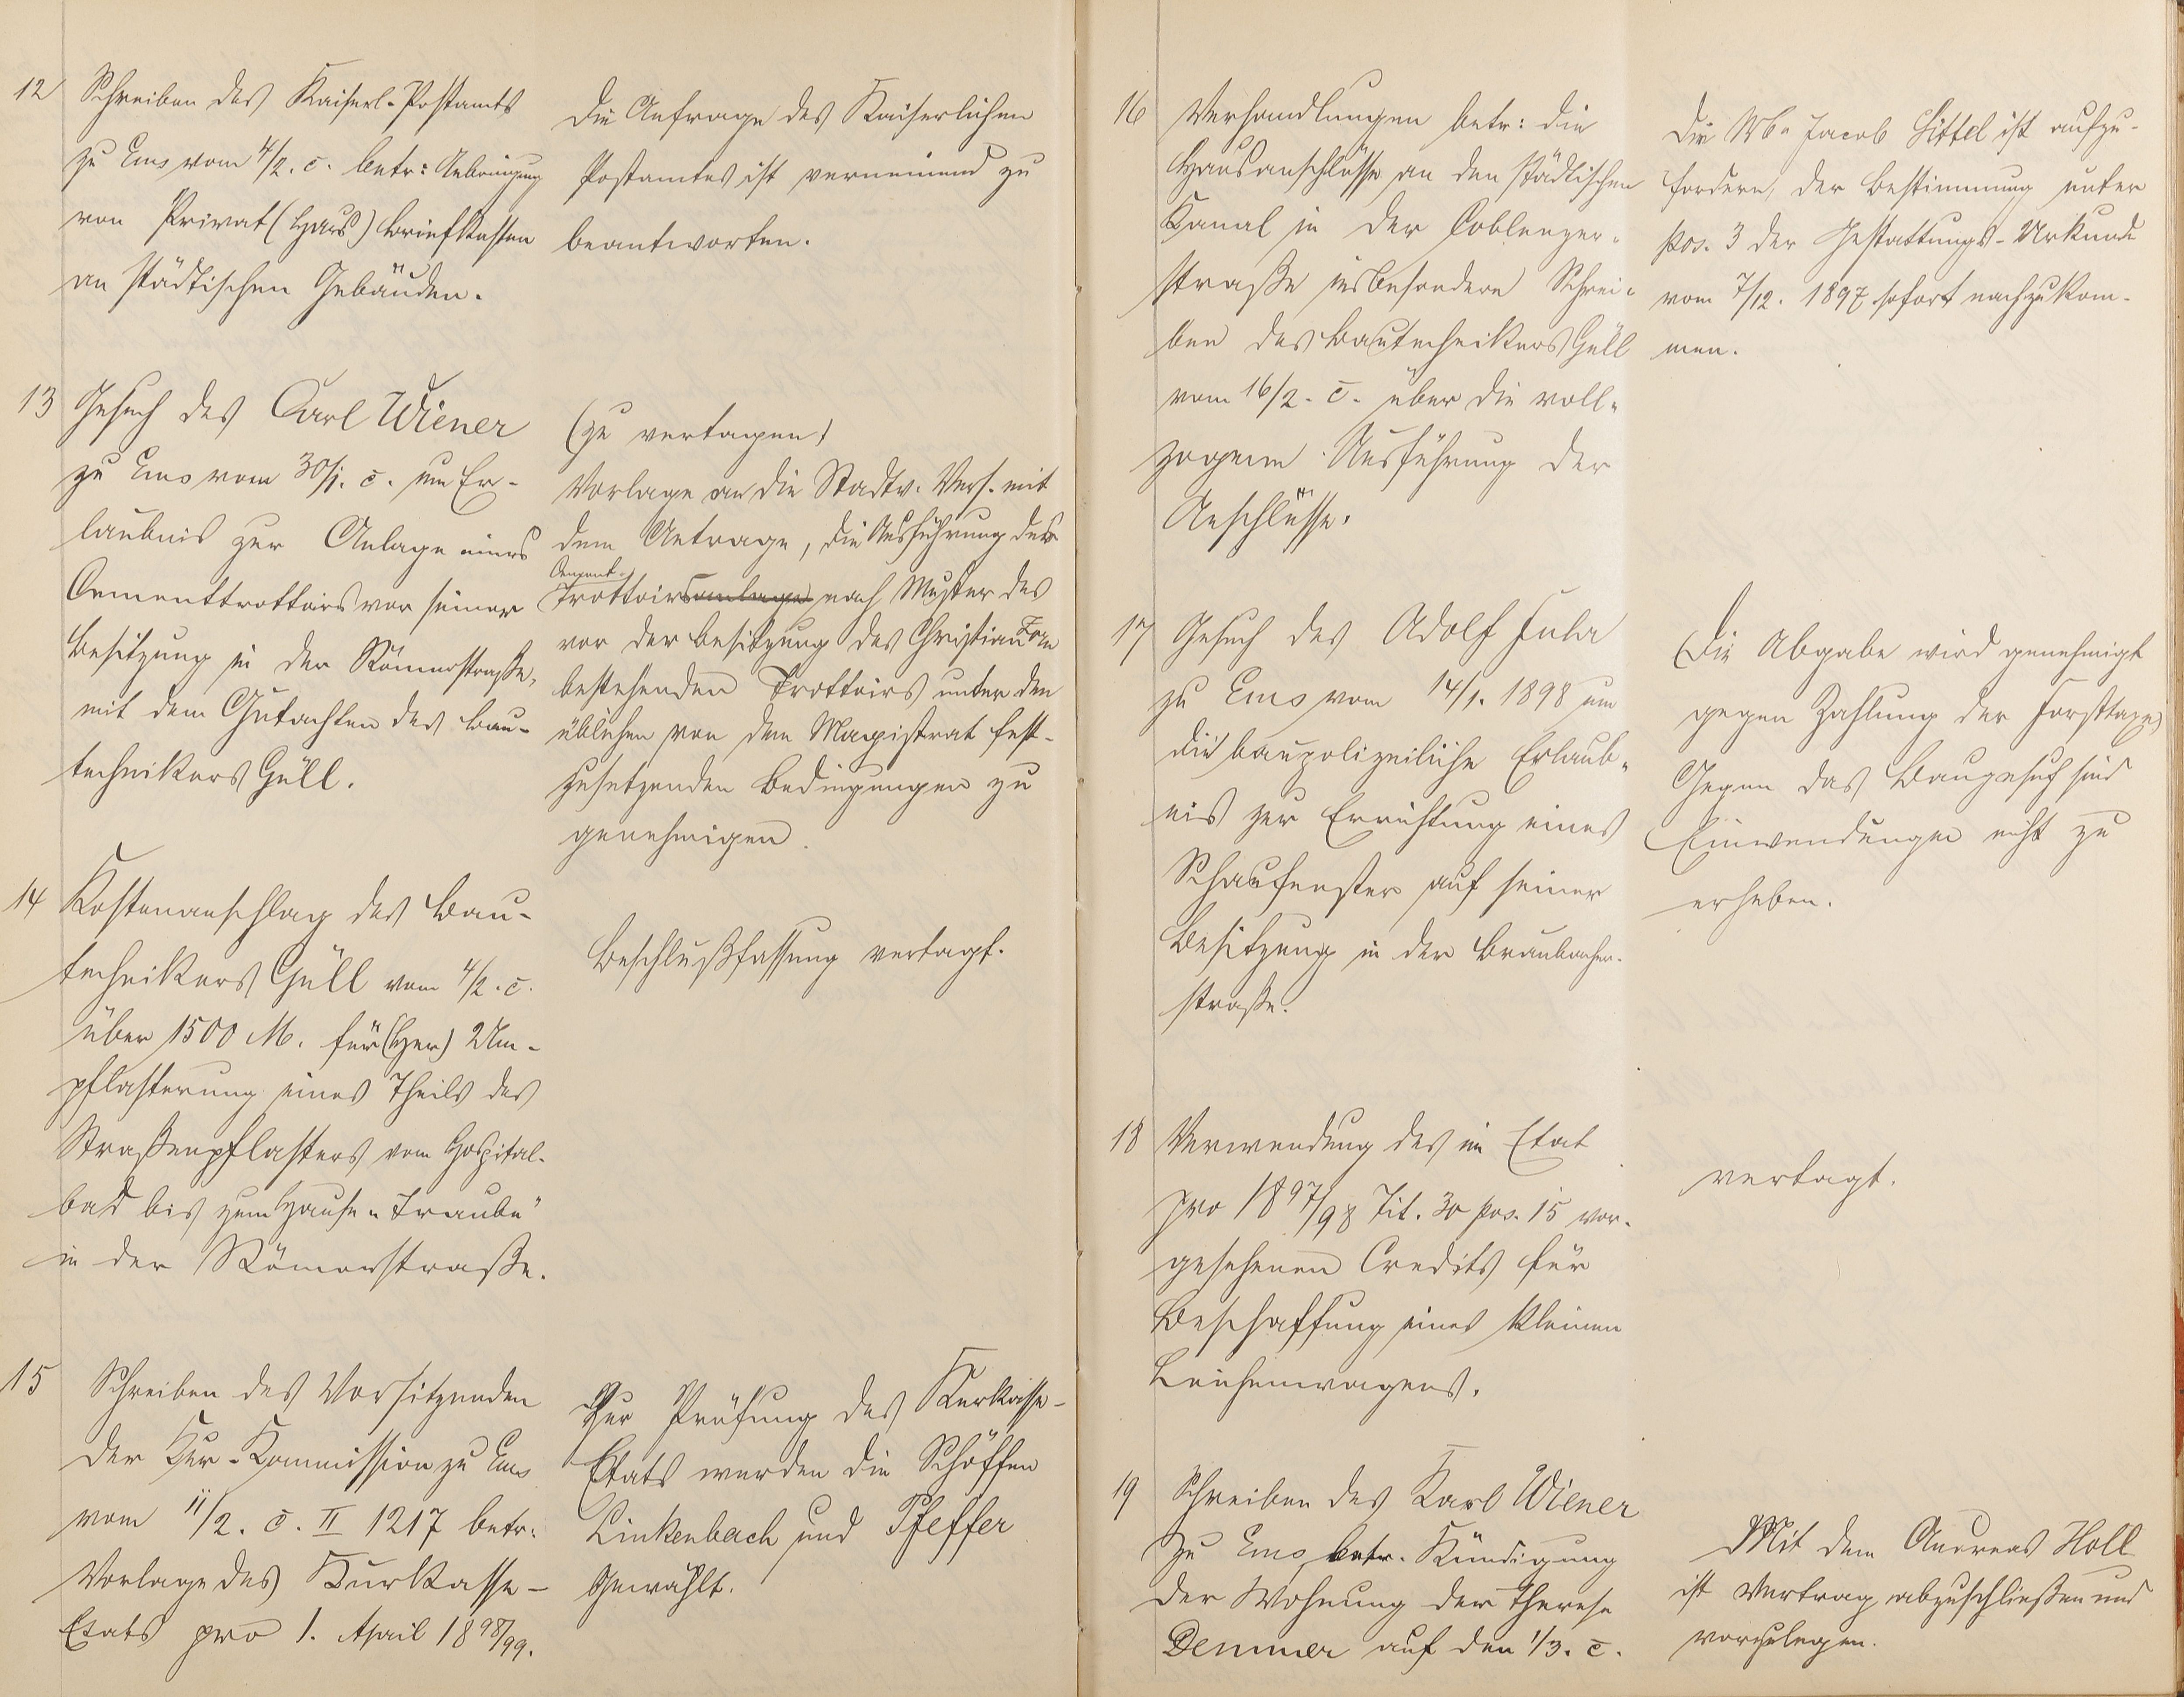 12 Schreiben des Kaiserl. Postamts
zu Ems vom 4/2. c. betr: Anbringung
von Privat (Haus) Briefkasten
an städtischen Gebäuden.
Die Anfrage des Kaiserlichen
Postamtes ist verneinend zu
beantworten.
13 Gesuch des Carl Wiener
zu Ems vom 30/1. c. um Er-
laubnis zur Anlage eines
Cementtrottoirs vor seiner
Besitzung in der Römerstraße,
mit dem Gutachten des Bau-
technikers Güll.
(zu vertagen)
Vorlage an die Stadtv. Vers. mit
dem Antrage, die Ausführung des
Cement-
Trottoirsanlage nach Muster des
vor der Besitzung des Christian
bestehenden Trottoirs unter den
üblichen von dem Magistrat fest-
zusetzenden Bedingungen zu
genehmigen.
14 Kostenanschlag des Bau-
technikers Güll vom 4/2. c.
über 1500 M. für (Her) Um-
pflasterung eines Theils des
Straßenpflasters vom Hospital-
bad bis zum Hause „Traube"
in der Römerstraße.
Beschlußfassung vertagt.
15 Schreiben des Vorsitzenden
der Kur-Kommission zu Ems
vom 11/2. c. II 1217 betr.
Vorlage des Kurkasse-
Etats pro 1. April 1898/99.
Zur Prüfung des Kurkasse-
Etats wurden die Schöffen
Linkenbach und Pfeffer
gewählt.
16 Verhandlungen betr: die
Hausanschlüsse an den städtischen
Kanal in der Coblenzer-
straße insbesondere Schrei-
ben des Bautechnikers Güll
vom 16/2. c. über die voll-
zogene Ausführung der
Anschlüsse.
Die Jacob Sittel ist aufzu-
fordern, der Bestimmung unter
Pos. 3 der Gestattungs-Urkunde
vom 7/12. 1897 sofort nachzukom-
men.
17 Gesuch des Adolf
zu Ems vom 14/1. 1898 um
die baupolizeiliche Erlaub-
nis zur Errichtung eines
Schaufenster auf seiner
Besitzung in der Braubacher-
straße.
Die Abgabe wird genehmigt
gegen Zahlung der Forsttaxe
Gegen das Baugesuch sind
Einwendungen nicht zu
erheben.
18 Verwendung des im Etat
pro 1897/98 Tit. 30 pos. 15 vor-
gesehenen Credits für
Beschaffung eines kleinen
Leichenwagens.
vertagt.
19 Schreiben des Karl Wiener
zu Ems, betr. Kündigung
der Wohnung der Therese
Demmer auf den 1/3. c.
Mit dem Andreas Holl
ist Vertrag abzuschließen und
vorzulegen.